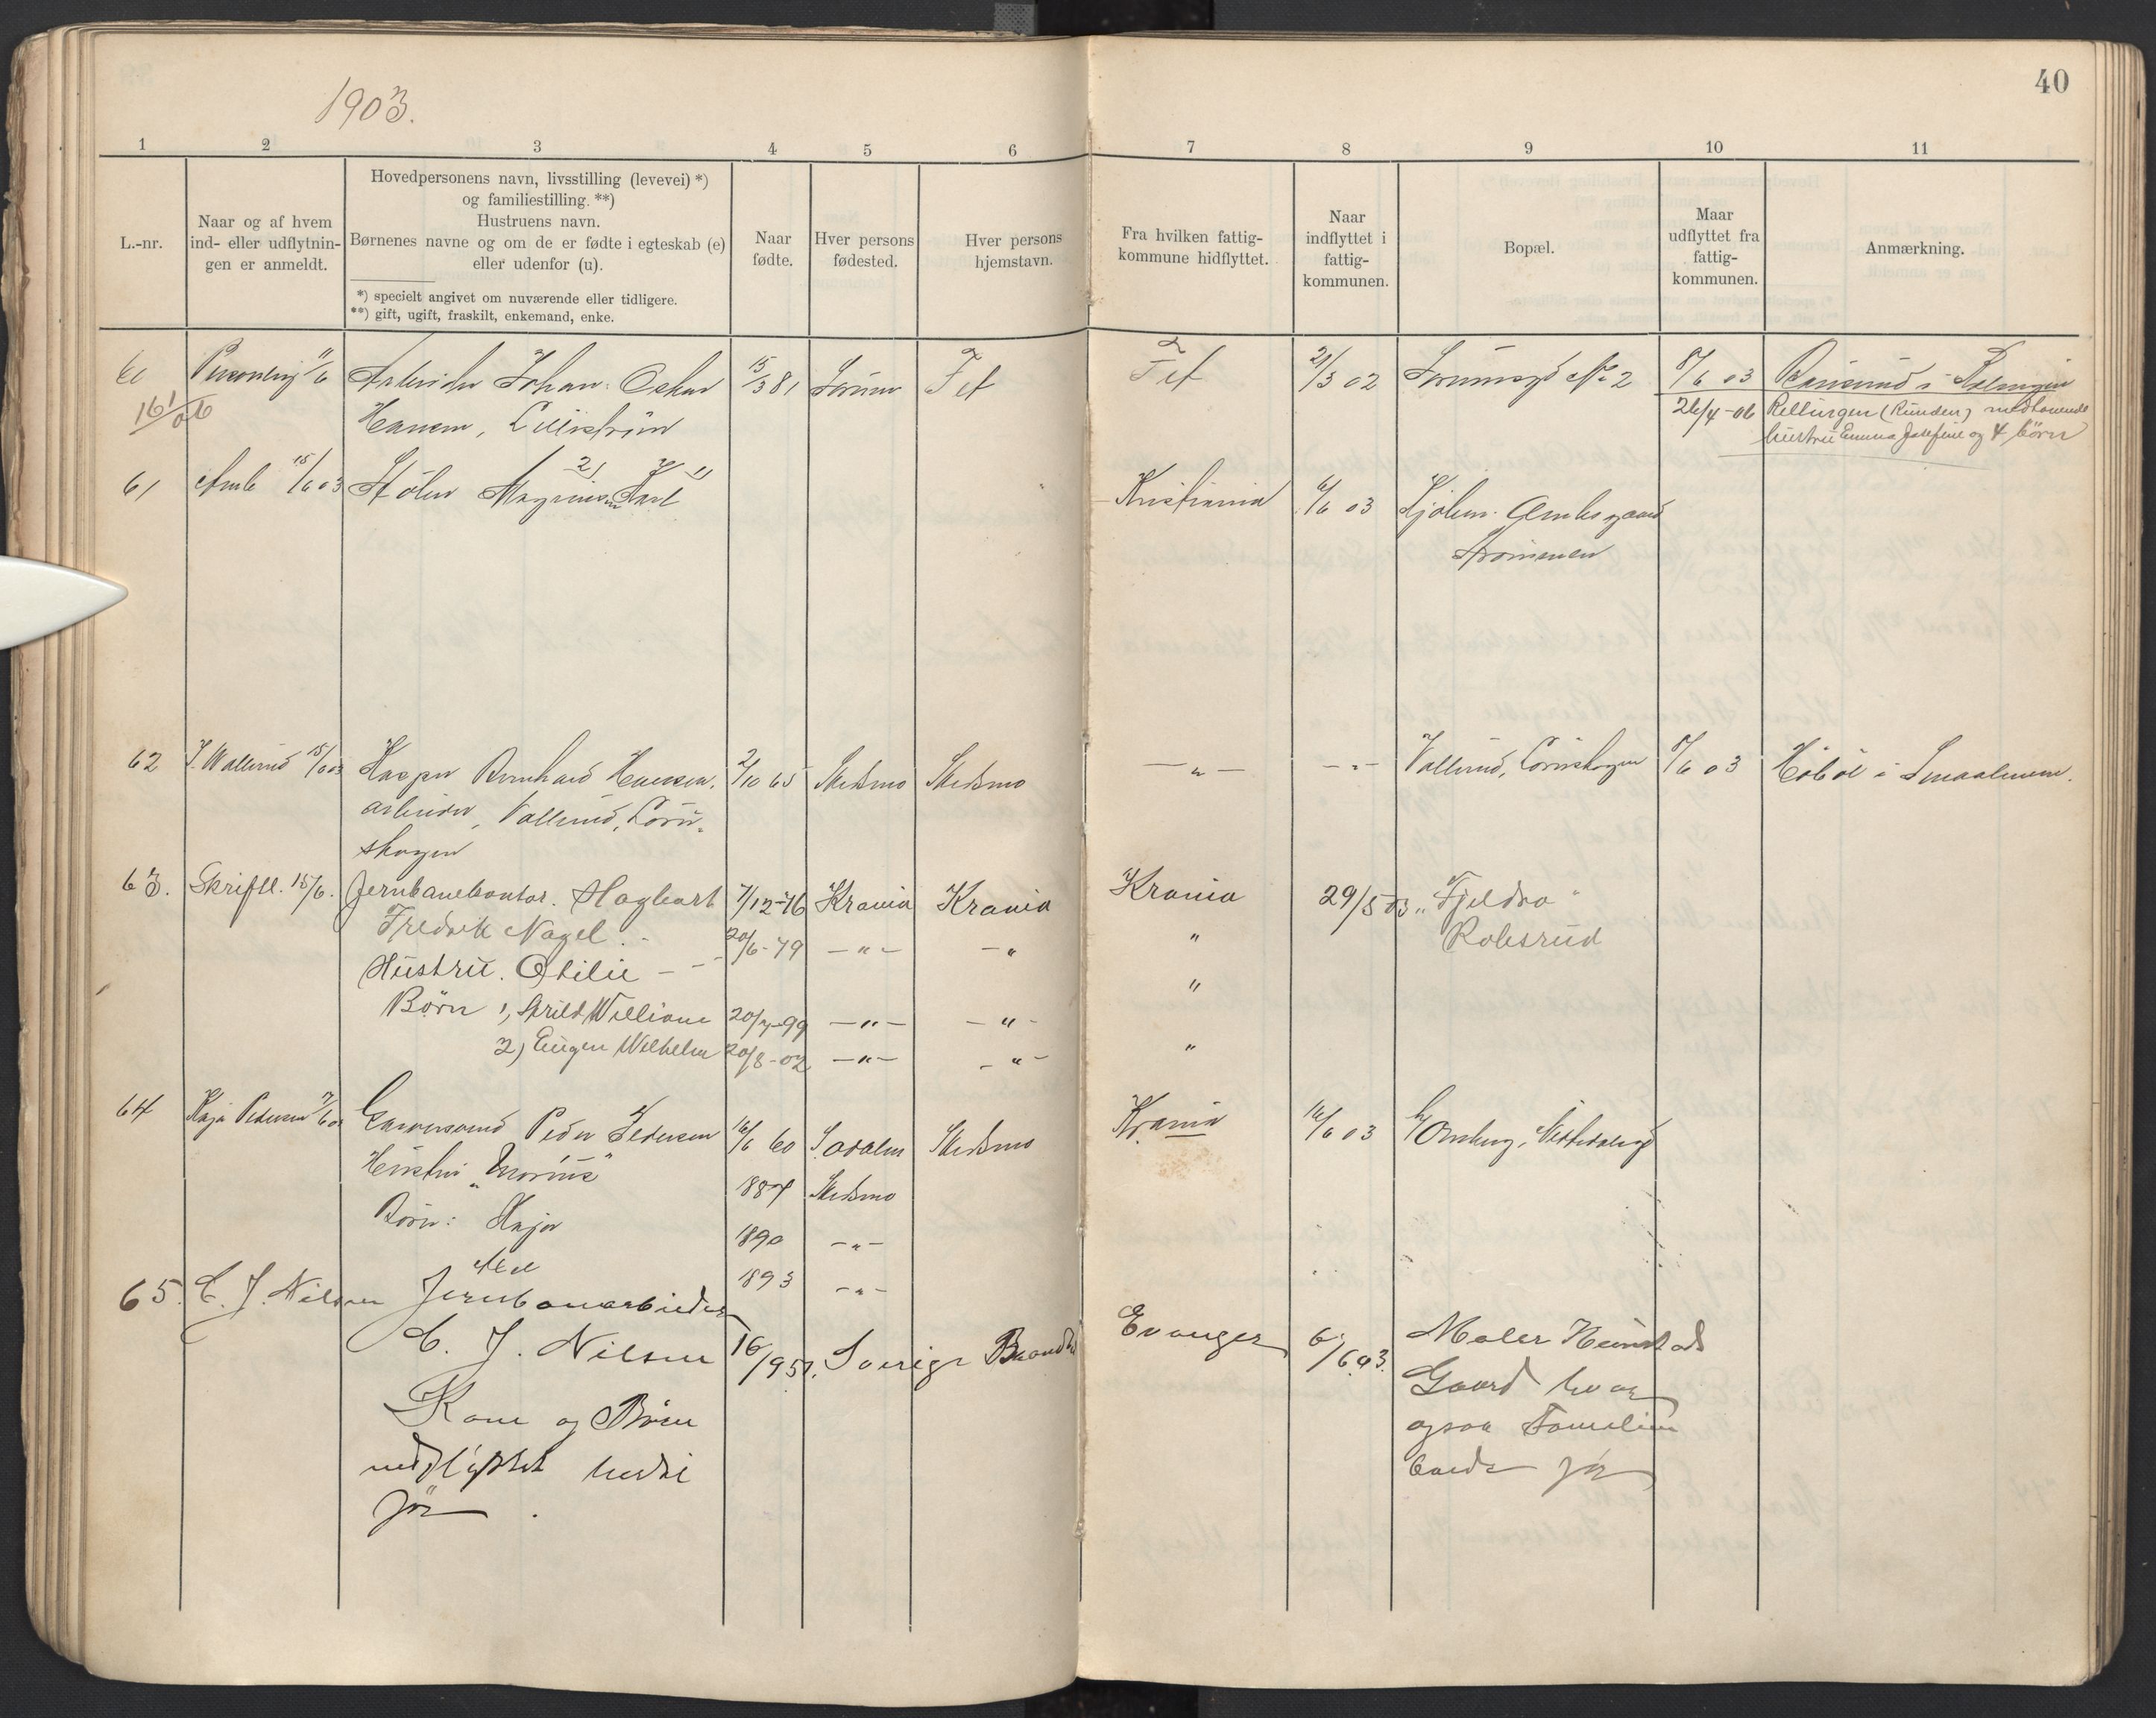 40
1903.
1 2 3 4 5 6 7 8 9 10 11
L.-nr.
Naar og af hvem
ind- eller udflytnin-
gen er anmeldt.
Hovedpersonens navn, livsstilling (levevei) *)
og familiestilling. **)
Hustruens navn.
Børnenes navne og om de er fødte i egteskab (e)
eller udenfor (u).
*) specielt angivet om nuværende eller tidligere.
**) gift, ugift, fraskilt, enkemand, enke.
Naar
fødte.
Hver persons
fødested.
Hver persons
hjemstavn.
Fra hvilken fattig-
kommune hidflyttet.
Naar
indflyttet i
fattig-
kommunen.
Bopæl.
Maar
udflyttet fra
fattig-
kommunen.
Anmærkning.
Personlig 11/6 Arbeider Johan Oskar 15/3 81 Sørum Fet Fet 21/3 02 No 2 8/6 03
16/1 06 Hansen, Lillestrøm 26/4-06 Rellingen (Runden) medhavende
hustru Emma Josefine og 4 børn
61 15/6 03 Karl Kristiania 6/6 03
Strømmen
62 15/6 03 Kasper Bernhard Hansen, 2/10 65 Skedsmo Skedsmo —„— —„— Vallerud, Lørenskogen 8/6 03 Høbøl i Smaalenene.
arbeider, Vallerud, Løren-
skogen
63. Skriftl. 15/6. Jernbanekontor. Hagbart 7/12-76 Krania Krania Krania 29/5 03 „Fjeldro"
Fredrik Nagel. 20/6-79 —„— —„ „ Robsrud
Hustru. Otilie — —
Børn 1, Arild Williame 20/7-99 —„— —„— „
2) Eugen Wilhelm 20/8-02 —„— —„— „
64 Kaja Pedersen Garversvend Peder Pedersen 16/6 60 S. Odalen Skedsmo Krania 16/6 03
Hustru 1887 Skedsmo
Børn: Kaja 1890 —„—
1893 —„—
65. C. J. Nilsen Jernbanearbeider
C. J. Nilsen Sverige Evanger 6/6 03. Maler
Kone og Børn Gaard hvor
medflyttet hertil ogsaa Familien
før boede før